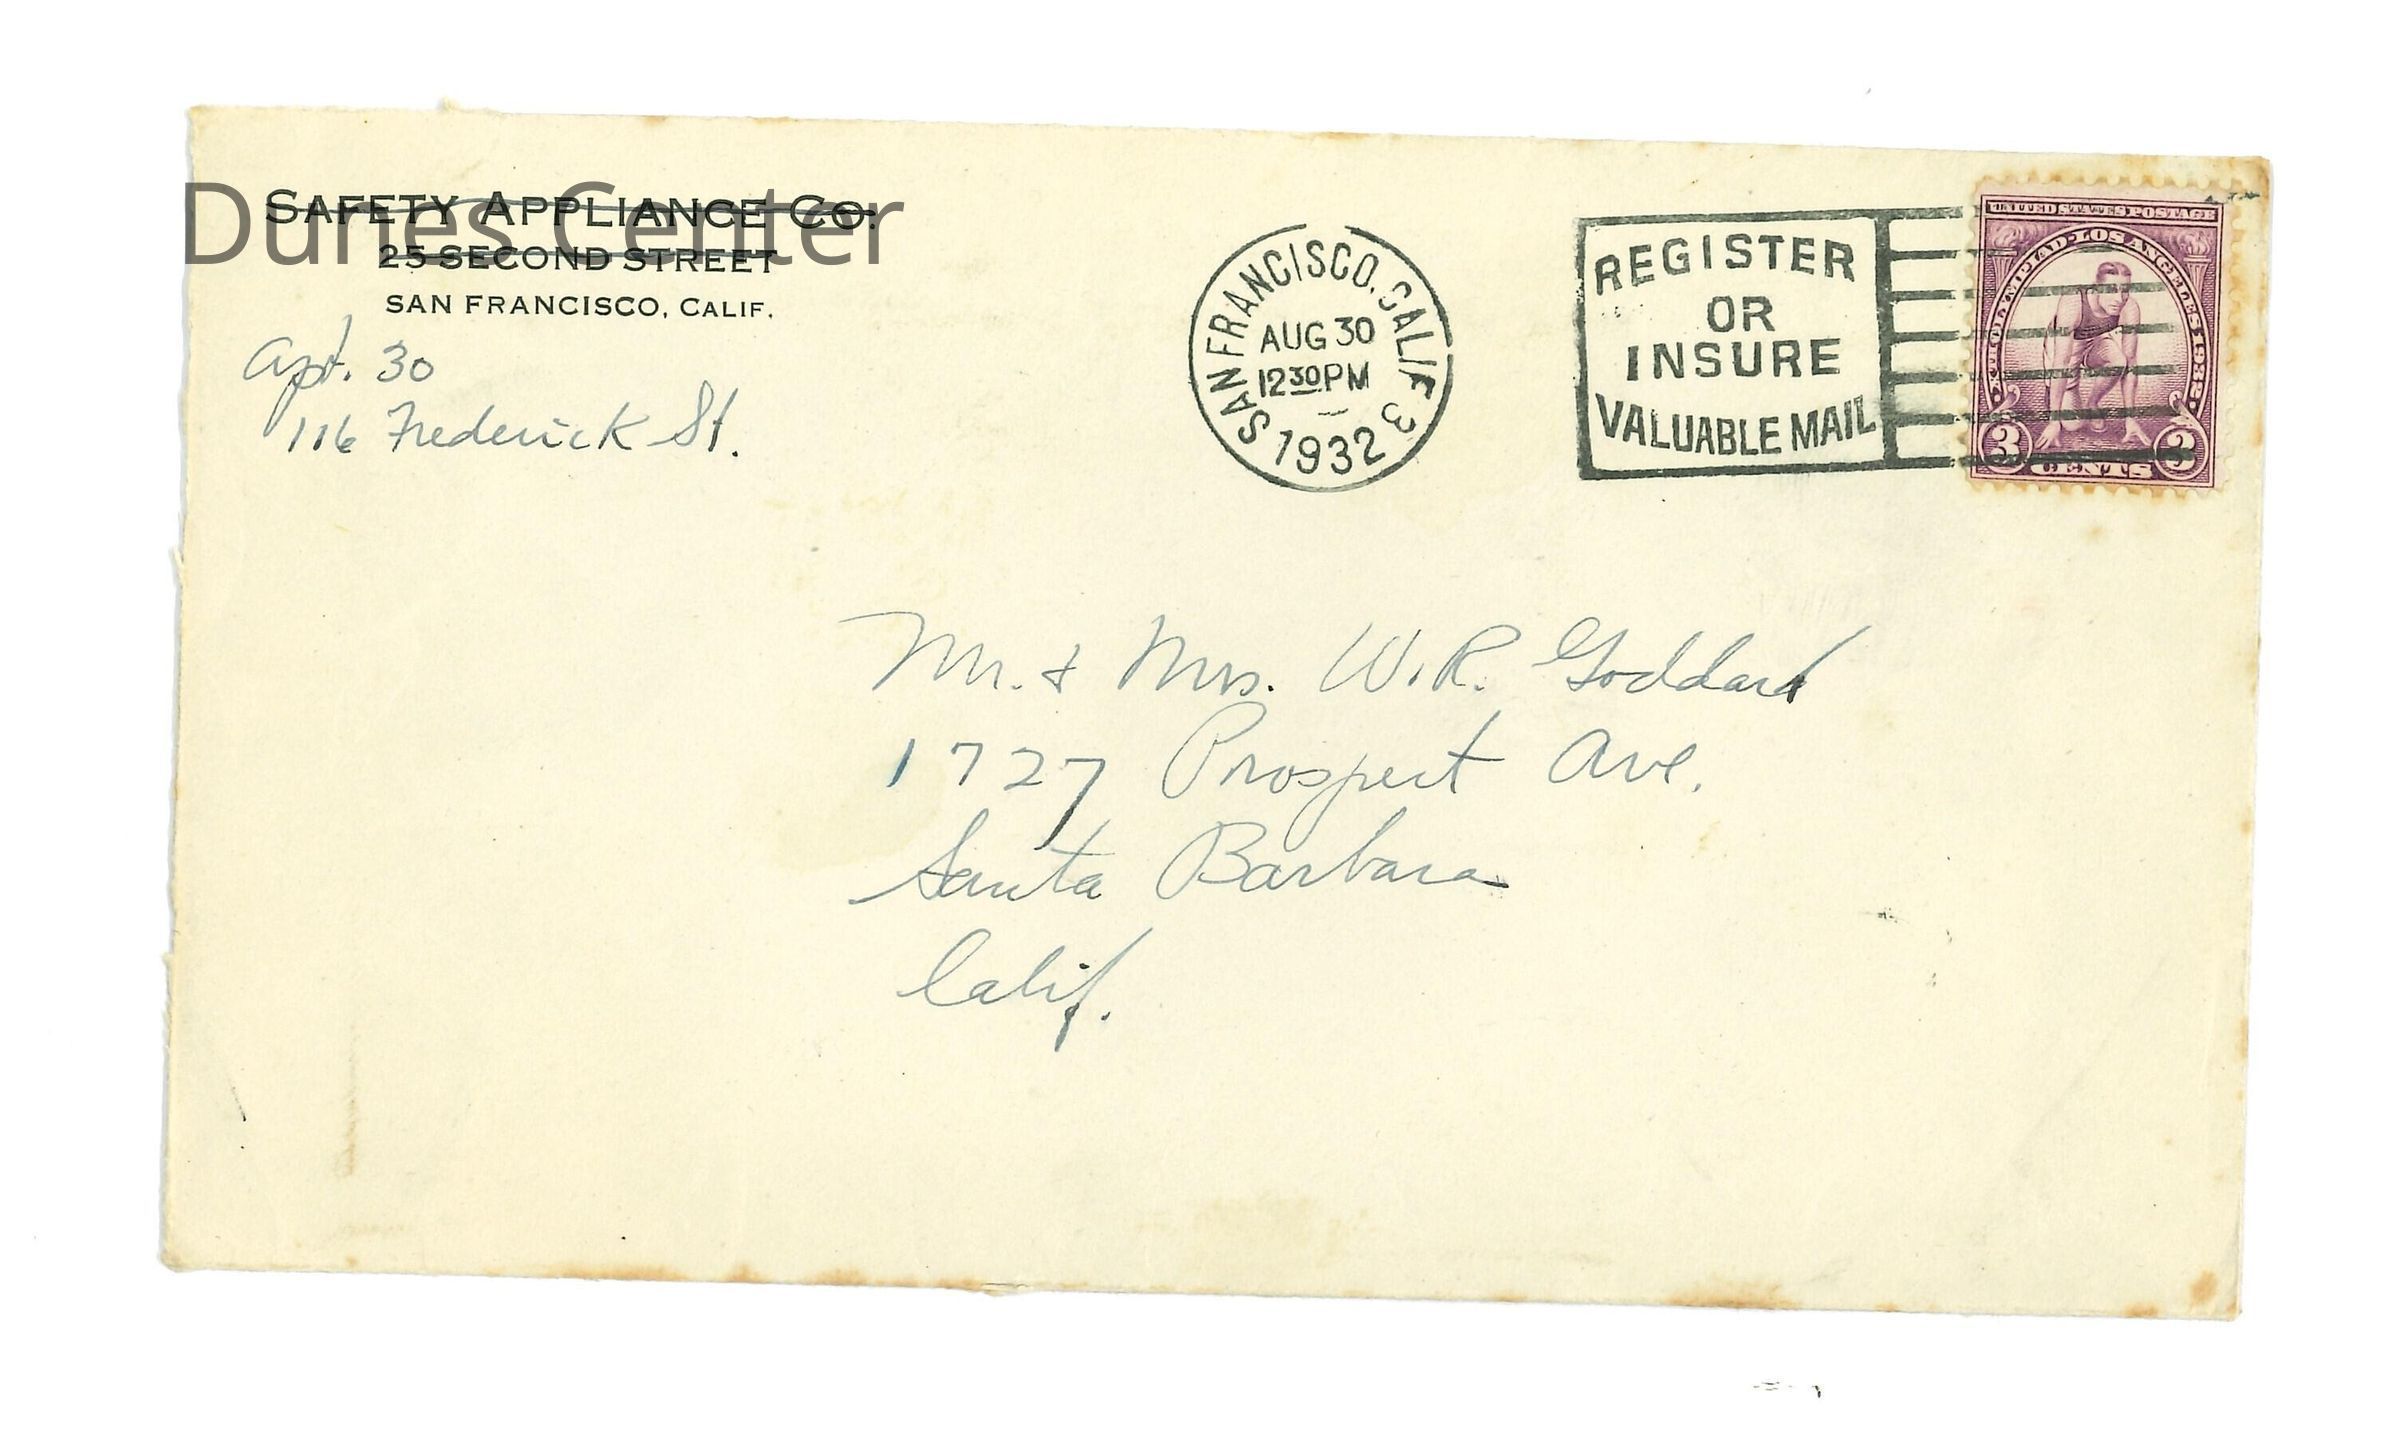 Dunes Center
SAFETY APPLIANCE CO.
25 SECOND STREET
SAN FRANCISCO, CALIF.
Apt. 30
116 Frederick St.
SAN FRANCISCO, CALIF. 3
AUG 30
12 30 PM
1932
REGISTER
OR
INSURE
VALUABLE MAIL
UNITED STATES POSTAGE
X OLYMPIAD LOS ANGELES 1932
3 CENTS 3
Mr. & Mrs. W. R. Goddard
1727 Prospect Ave.
Santa Barbara
Calif.